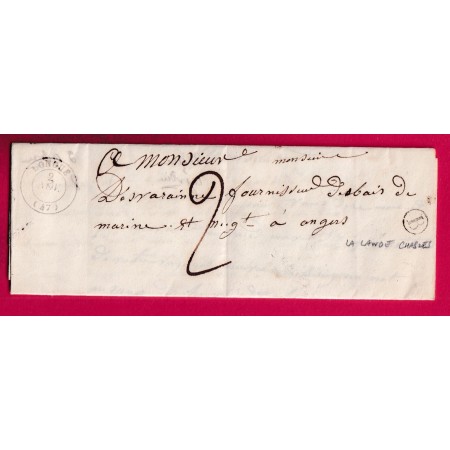 A monsieur monsieur
Desvarainne fournisseur de bois de
marine et mgt à angers
2
(47)
LA LANDE CHASLES